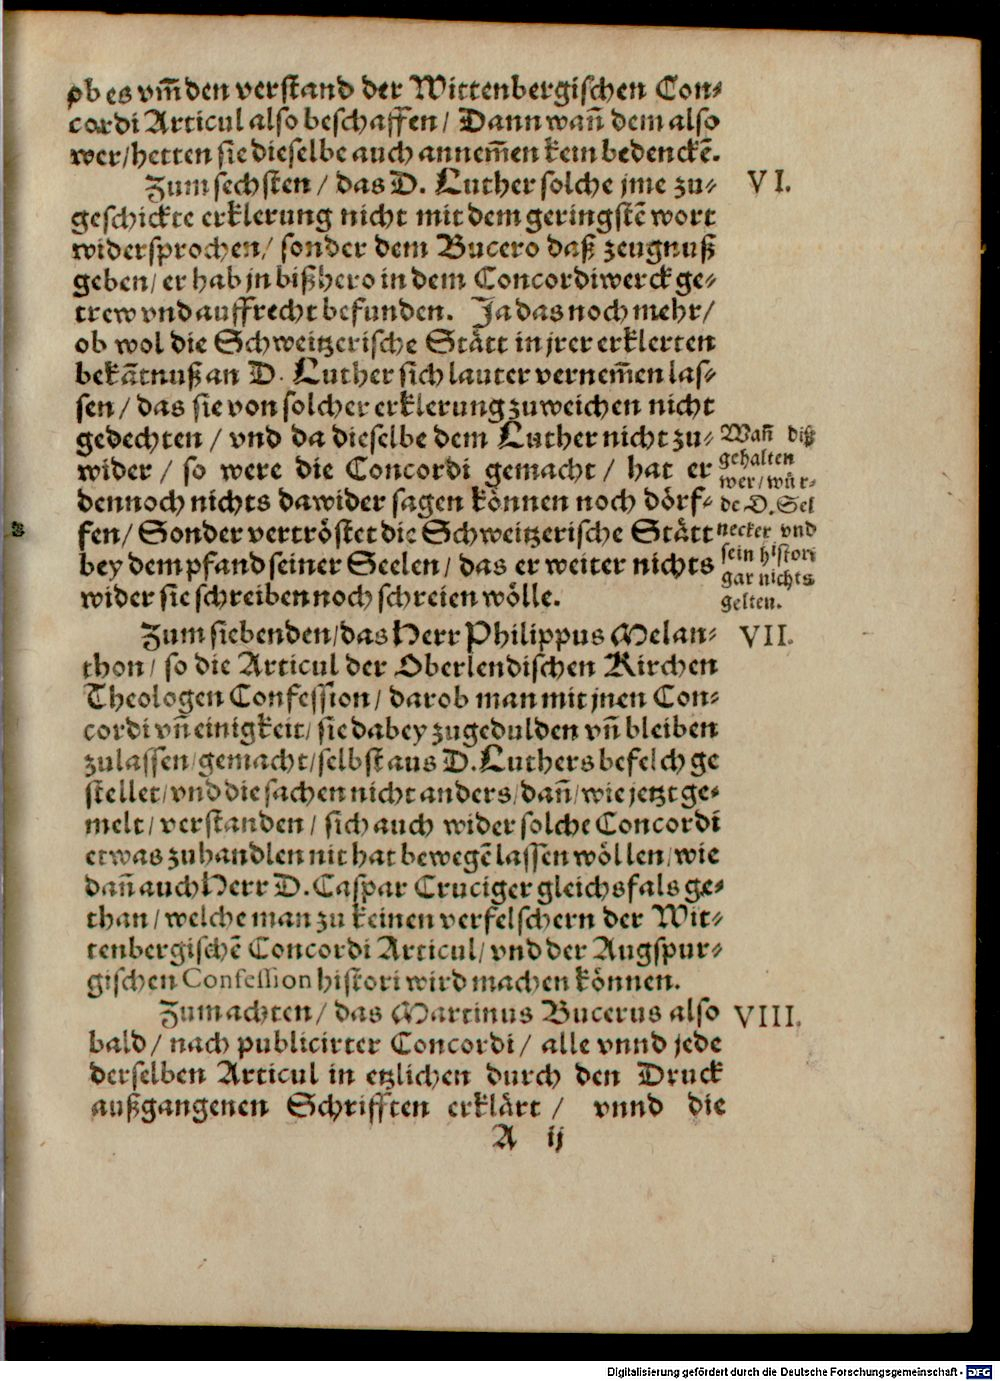 ob es vm̃ den verstand der Wittenbergischen Con-
cordi Articul also beschaffen / Dann wañ dem also
wer / hetten sie dieselbe auch annem̃en kein bedenckẽ.
Zum sechsten / das D. Luther solche jme zu-
VI.
geschickte erklerung nicht mit dem geringstẽ wort
widersprochen / sonder dem Bucero daß zeugnuß
geben / er hab jn bißhero in dem Concordiwerck ge-
trew vnd auffrecht befunden. Ja das noch mehr /
ob wol die Schweitzerische Stätt in jrer erklerten
bekãtnuß an D. Luther sich lauter vernem̃en las-
sen / das sie von solcher erklerung zuweichen nicht
gedechten / vnd da dieselbe dem Luther nicht zu-
wider / so were die Concordi gemacht / hat er
dennoch nichts dawider sagen können noch dörf-
fen / Sonder vertröstet die Schweitzerische Stätt
bey dem pfand seiner Seelen / das er weiter nichts
wider sie schreiben noch schreien wölle.
Wañ diß
gehalten
wer / wür-
de D. Sel
necker vnd
sein histori
gar nichts
gelten.
Zum siebenden / das Herr Philippus Melan-
VII.
thon / so die Articul der Oberlendischen Kirchen
Theologen Confession / darob man mit jnen Con-
cordi vñ einigkeit / sie dabey zugedulden vñ bleiben
zulassen / gemacht / selbst aus D. Luthers befelch ge
stellet / vnd die sachen nicht anders / dañ / wie jetzt ge-
melt / verstanden / sich auch wider solche Concordi
etwas zuhandlen nit hat bewegẽ lassen wöllen / wie
dañ auch Herr D. Caspar Cruciger gleichsfals ge-
than / welche man zu keinen verfelschern der Wit-
tenbergischẽ Concordi Articul / vnd der Augspur-
gischen Confession histori wird machen können.
Zum achten / das Martinus Bucerus also
VIII.
bald / nach publicirter Concordi / alle vnnd jede
derselben Articul in etzlichen durch den Druck
außgangenen Schrifften erklärt / vnnd die
A ij
Digitalisierung gefördert durch die Deutsche Forschungsgemeinschaft - DFG